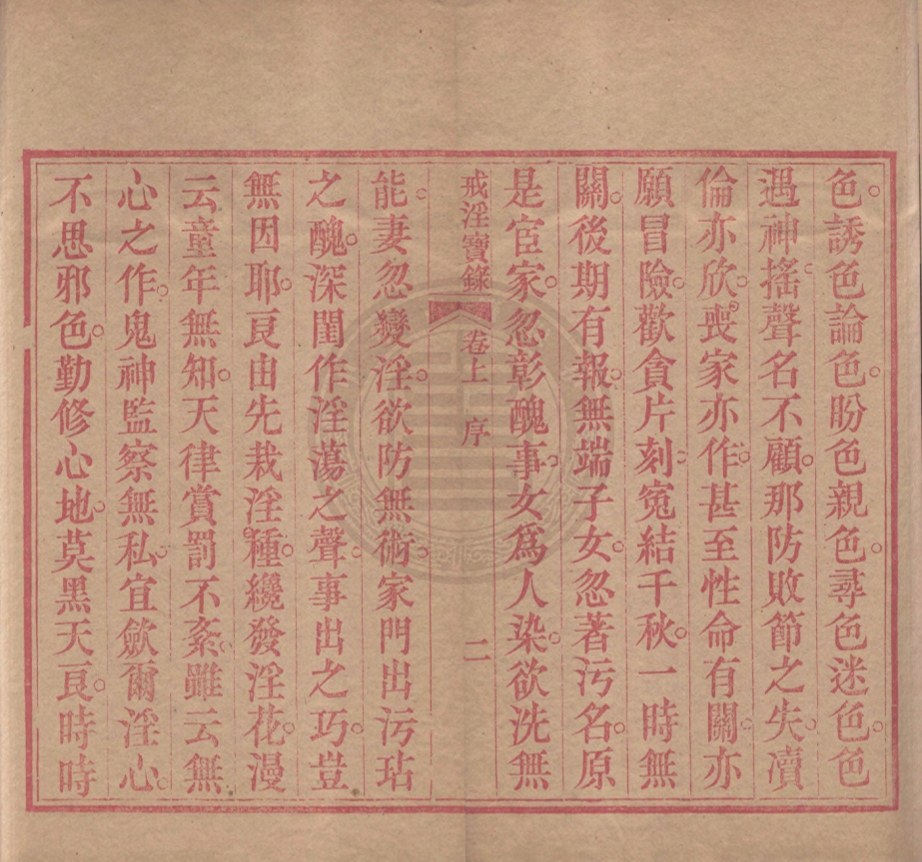 色。誘色論色。盼色親色。尋色迷色。色
遇神搖。聲名不顧。那防敗節之失。瀆
倫亦欣。喪家亦作。甚至性命有關。亦
願冒險。歡貪片刻。寃結千秋。一時無
關。後期有報。無端子女。忽著污名。原
是宦家。忽彰醜事。女爲人染。欲洗無
戒淫寶錄 卷上 序 二
能。妻忽變淫。欲防無術。家門出污玷
之醜。深閨作淫蕩之聲。事出之巧。豈
無因耶。良由先栽淫種。纔發淫花。漫
云童年無知。天律賞罰不紊。雖云無
心之作。鬼神監察無私。宜斂爾淫心。
不思邪色。勤修心地。莫黑天良。時時